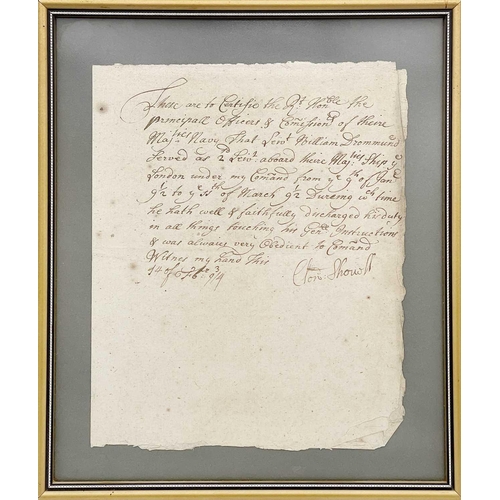 These are to Certifie the Rt Honble the
principall Officers & Comissionrs of theire
Majties Navy That Leivt William Drommund
Served as 2d Leivt aboard theire Majties Ship ye
London under my Comand from ye 9th of Janr
9½ to ye 11th of March 9½ Dureing wch time
he hath well & faithfully discharged his duty
in all things touching his Genll Instructions
& was always very Obedient to Comand
Witnes my hand This
14 of Feb 9¾
Clow Shovell